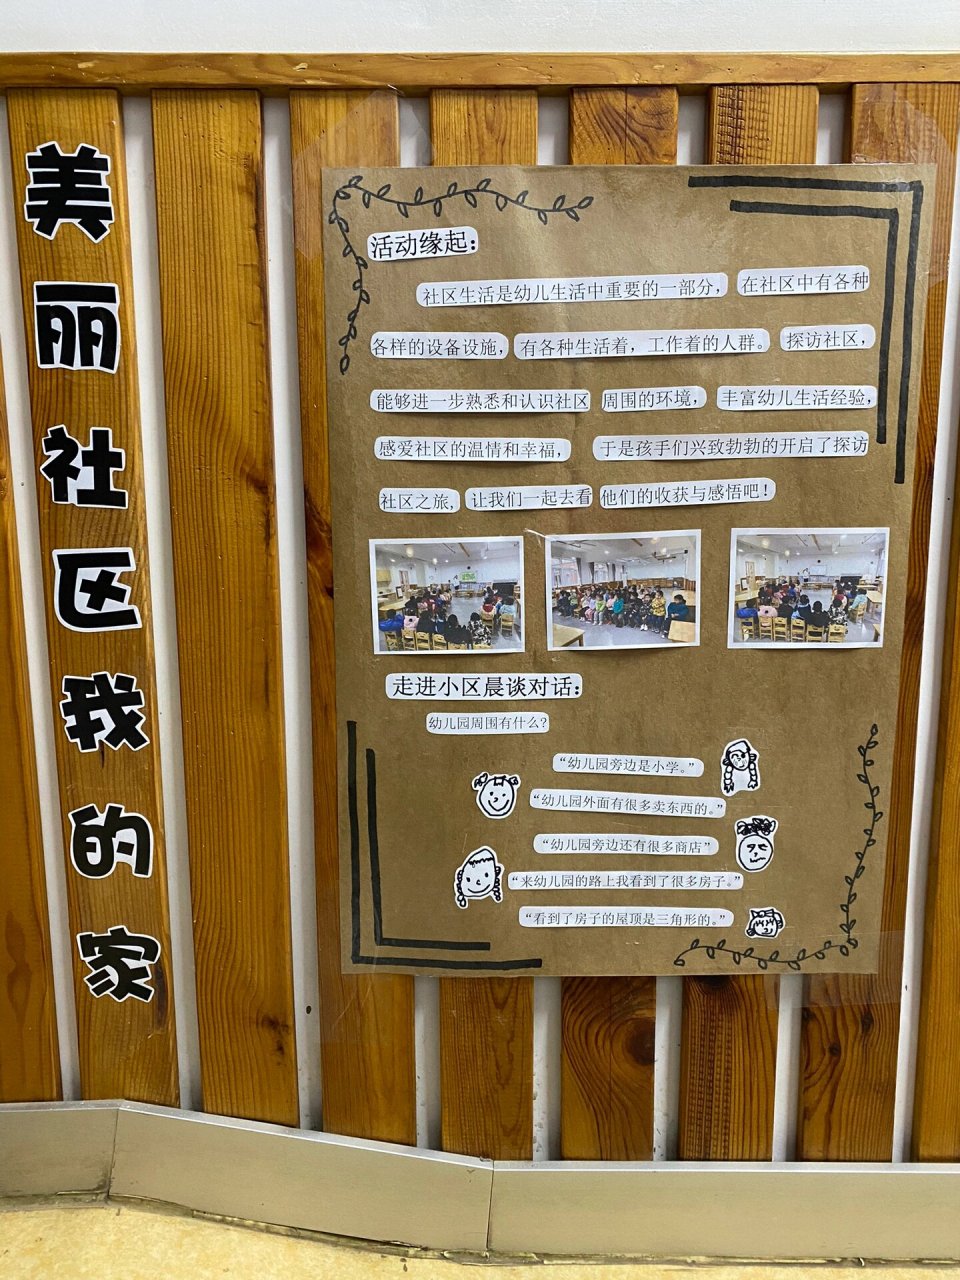 美丽社区我的家
活动缘起：
社区生活是幼儿生活中重要的一部分，在社区中有各种
各样的设备设施，有各种生活着，工作着的人群。探访社区，
能够进一步熟悉和认识社区周围的环境，丰富幼儿生活经验，
感爱社区的温情和幸福，于是孩手们兴致勃勃的开启了探访
社区之旅，让我们一起去看他们的收获与感悟吧！
走进小区晨谈对话：
幼儿园周围有什么?
“幼儿园旁边是小学。”
“幼儿园外面有很多卖东西的。”
“幼儿园旁边还有很多商店”
“来幼儿园的路上我看到了很多房子。”
“看到了房子的屋顶是三角形的。”